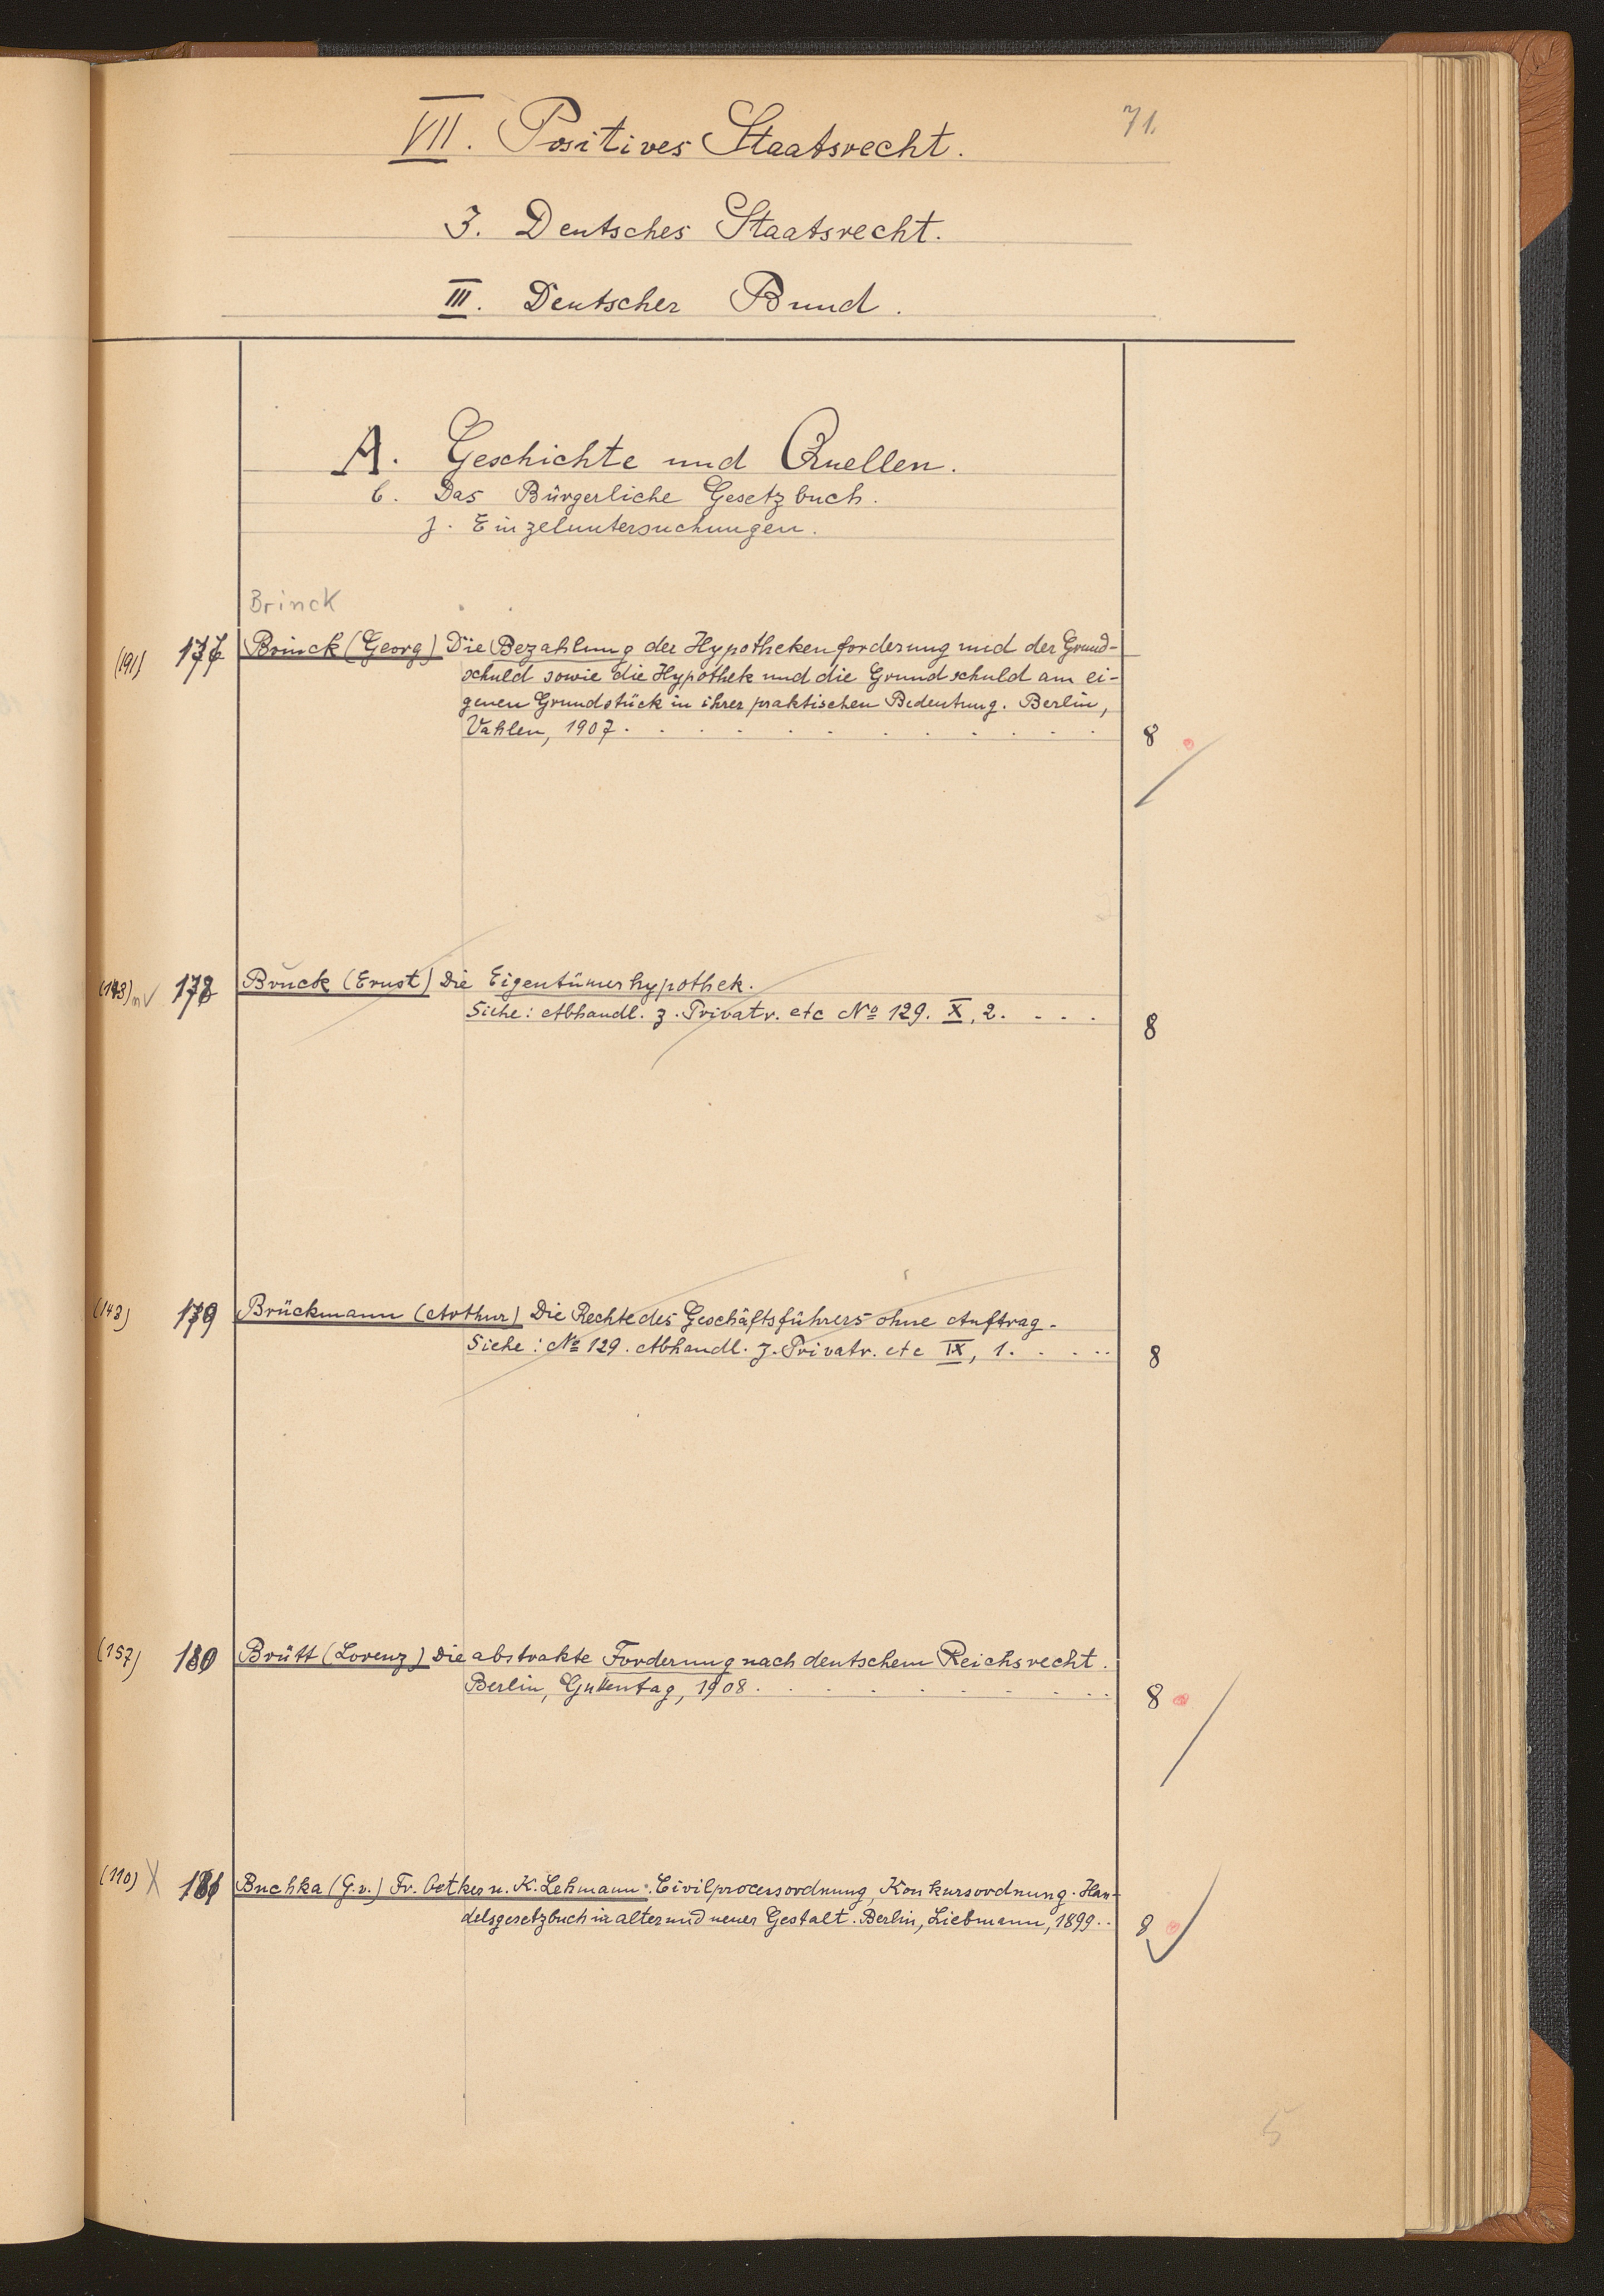 71.
VII. Positives Staatsrecht.
3. Deutsches Staatsrecht.
III. Deutscher Bund.
A. Geschichte und Quellen.
b. Das Bürgerliche Gesetzbuch.
j. Einzeluntersuchungen.
Brinck
(191) 177 Brinck (Georg) Die Bezahlung der Hypothekenforderung und der Grund-
schuld sowie die Hypothek und die Grundschuld am ei-
genen Grundstück in ihrer praktischen Bedeutung. Berlin,
Vahlen, 1907. 8
(143) 178 Bruck (Ernst) Die Eigentümerhypothek.
Siehe: Abhandl. z. Privatr. etc No 129. X, 2. . . . 8
(143) 179 Brückmann (Arthur) Die Rechte des Geschäftsführers ohne Auftrag.
Siehe: No 129. Abhandl. z. Privatr. etc IX, 1. . . . . 8
(157) 180 Brütt (Lorenz) Die abstrakte Forderung nach deutschem Reichsrecht.
Berlin, Guttentag, 1908. 8
(110) X 181 Buchka (G. v.) Fr. Oetker u. K. Lehmann. Civilprocessordnung, Konkursordnung. Han-
delsgesetzbuch in alter und neuer Gestalt. Berlin, Liebmann, 1899. . 8
5